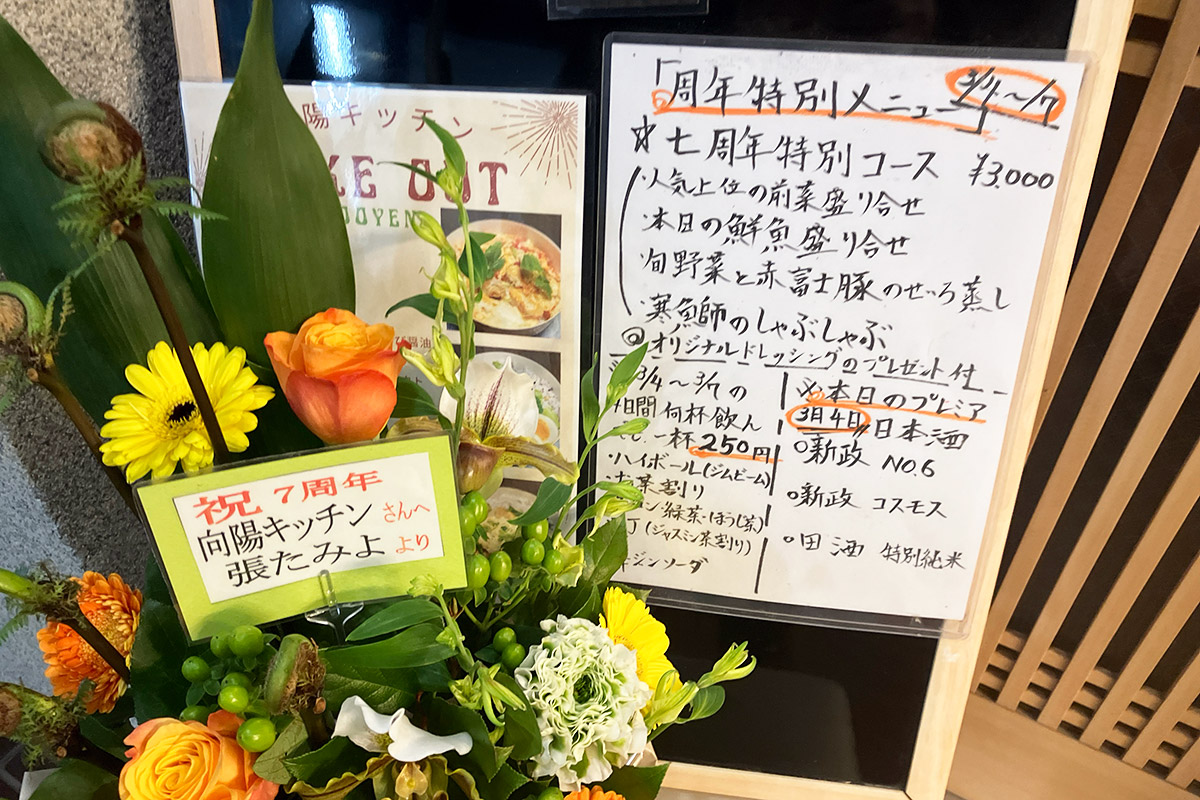 陽キッチン
KE OUT
DOYEN
醤油
祝 7周年
向陽キッチン さんへ
張たみよ より
「周年特別メニュー」 3/4～/7
☆七周年特別コース ¥3,000
・人気上位の前菜盛り合せ
・本日の鮮魚盛り合せ
・旬野菜と赤富士豚のせいろ蒸し
・寒魚師のしゃぶしゃぶ
◎オリジナルドレッシングのプレゼント付
3/4～3/7の
4日間何杯飲ん
一杯250円
・ハイボール(ジムビーム)
お茶割り
緑茶・ほうじ茶)
(ジャスミン茶割り)
ジンソーダ
本日のプレミア
3月4日 日本酒
○新政 NO.6
○新政 コスモス
○田酒 特別純米